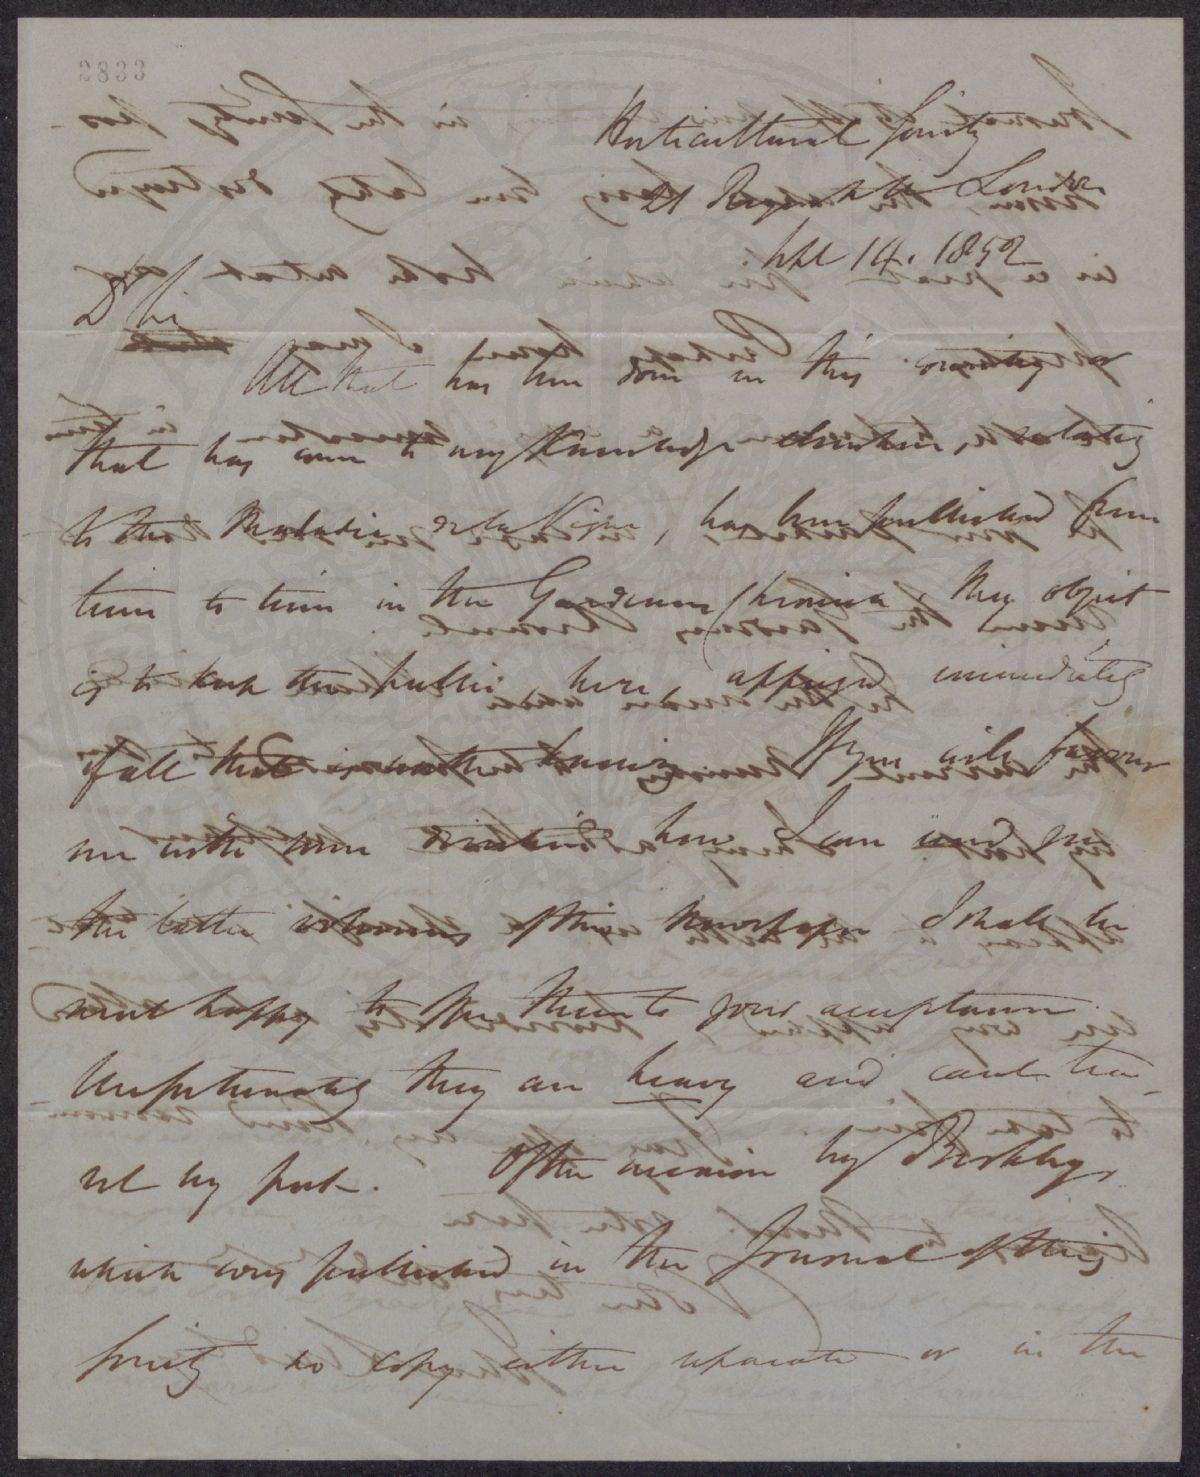 2833
Horticultural Society
21 Regent St London
14. 1852
D Sir
All that has been done in this country or
that has come to my knowledge elsewhere, relating
to the Maladie de la Vigne, has been published from
time to time in the Gardeners Chronicle. The object
is to keep the public here apprised immediately
of all that is worth knowing. If you will favour
me with some how I can send you
the latter volumes of this Newspaper I shall be
most happy to them to your acceptance.
Unfortunately they are heavy and cant trav-
el by post. Of the memoir by Mr Berkeley,
which was published in the Journal of this
Society no copy either separate or in the